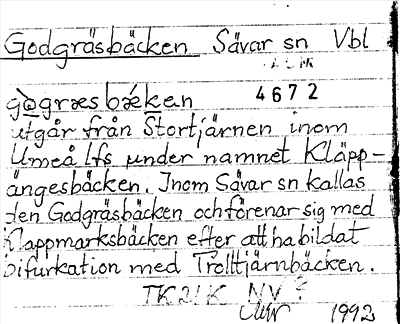 Godgräsbäcken Sävar sn Vbl
gògræsbǽkan 4672
utgår från Stortjärnen inom
Umeå lfs under namnet Kläpp-
ängesbäcken. Inom Sävar sn kallas
den Godgräsbäcken och förenar sig med
Klappmarksbäcken efter att ha bildat
bifurkation med Trolltjärnbäcken.
TK 21 K NV
1992